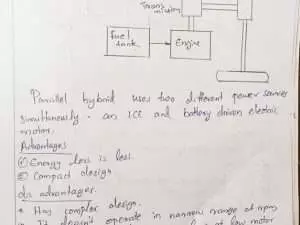 Trans
mission
fuel
tank
Engine
Parallel hybrid uses two different power sources
simultaneously - an ICE and battery driven electric
motor.
Advantages
① Energy loss is less.
② Compact design
dis advantages.
* Has complex design.
* It doesn't operate in narrow range of rpms
at low motor